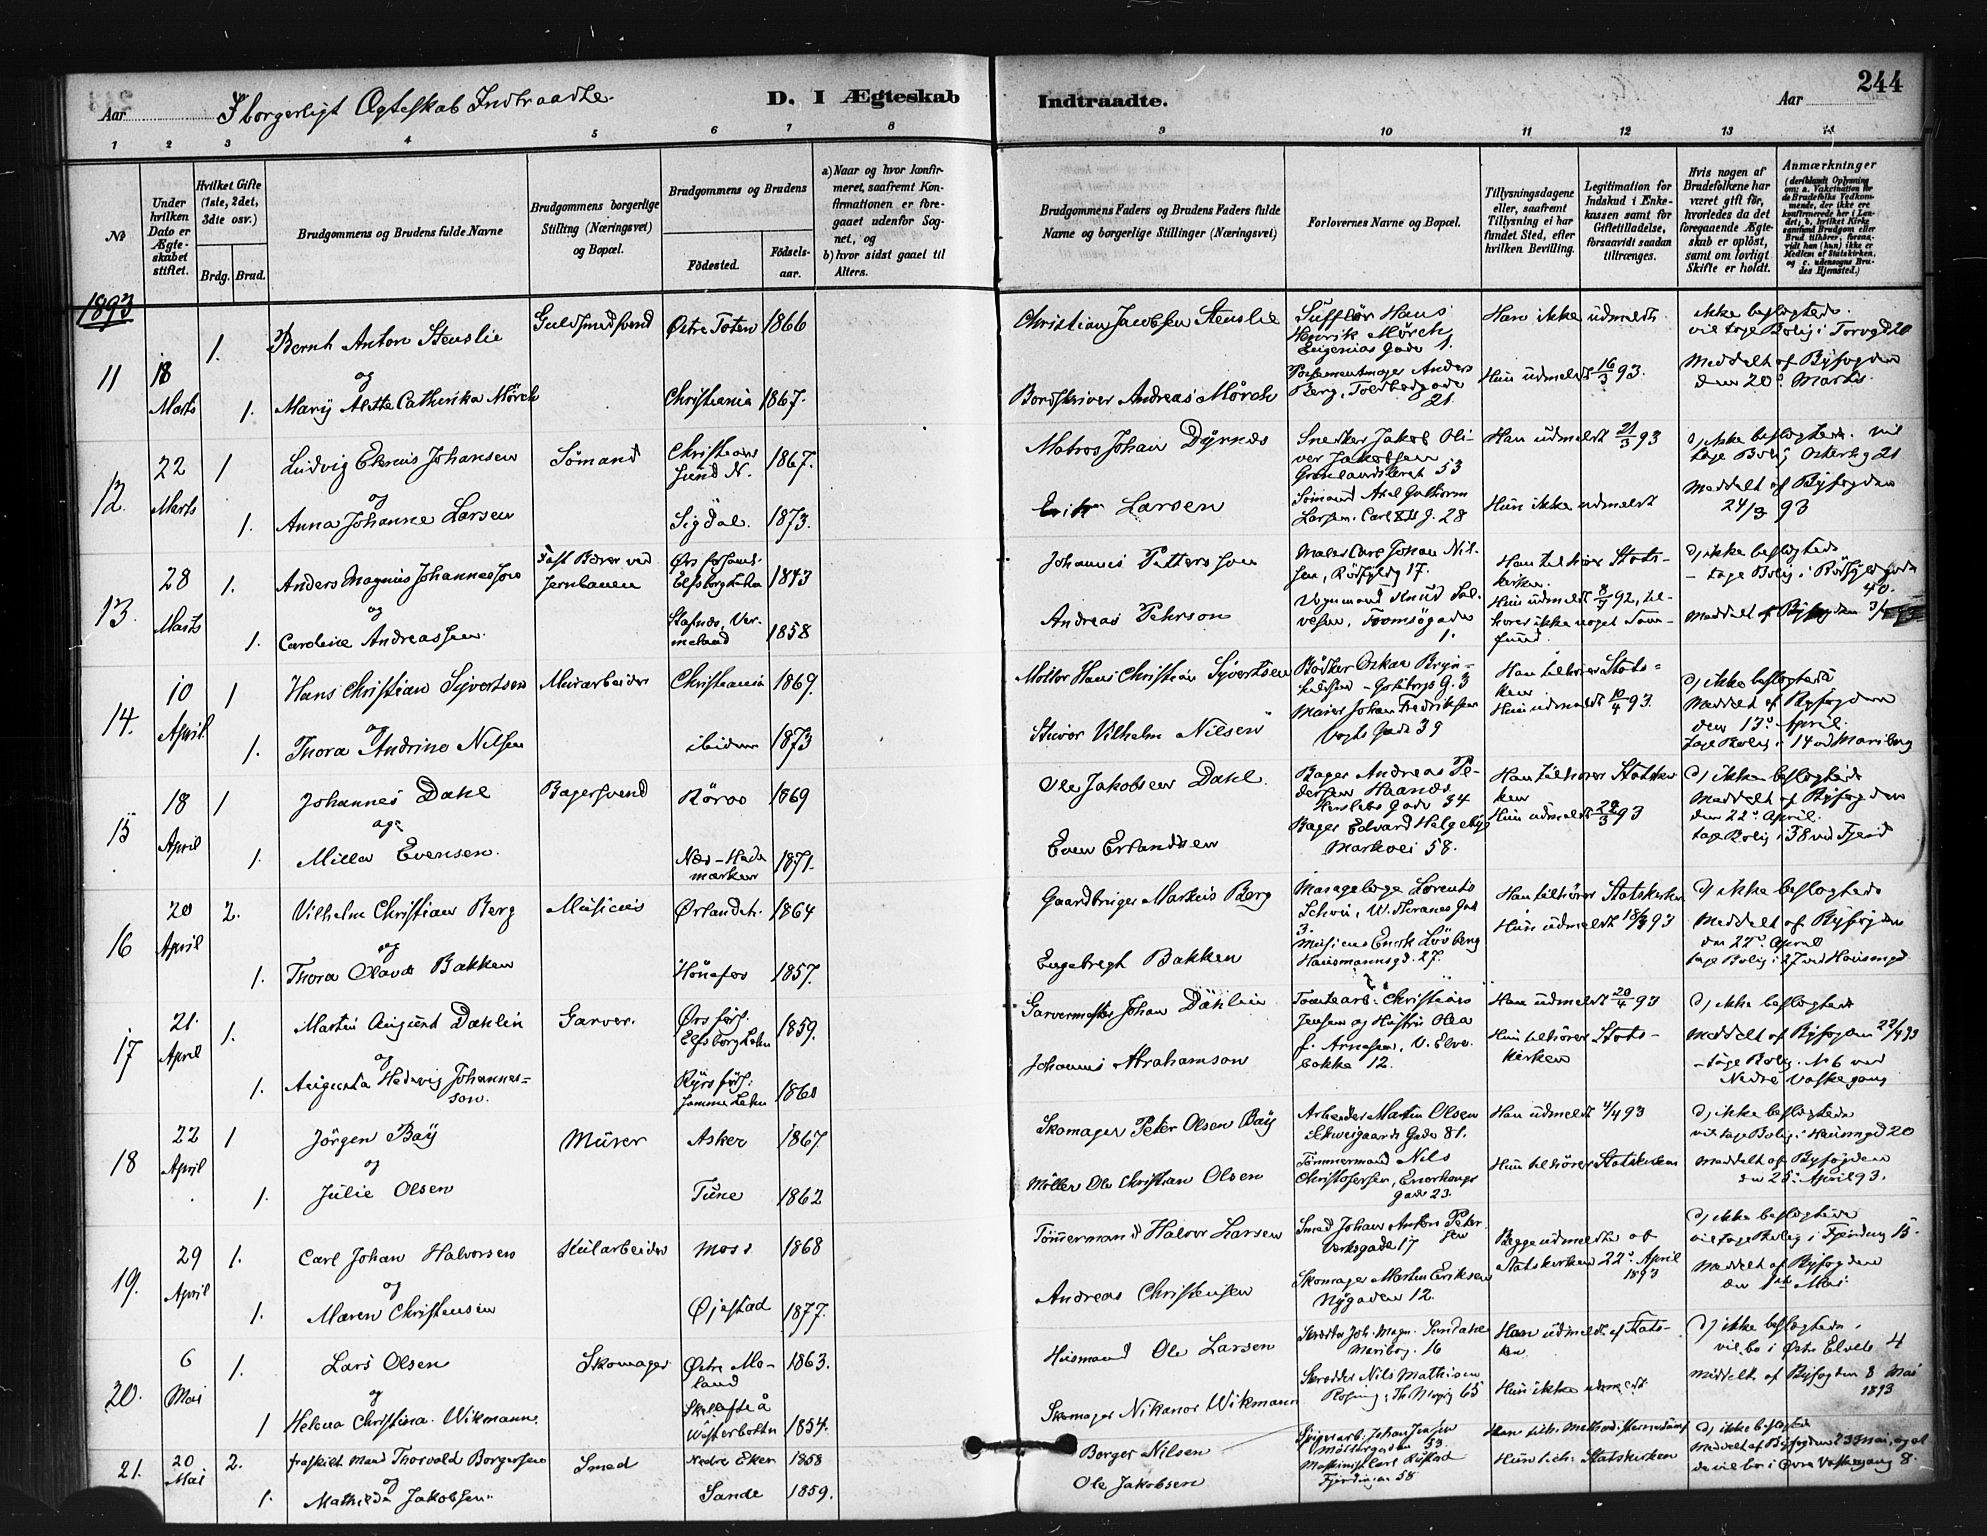 Aar
I borgerligt Ægteskab Indtraadte.
D. I Ægteskab
Indtraadte.
Aar
244
1 2 3 4 5 6 7 8 9 10 11 12 13 14
No
Under hvilken Dato er Ægteskabet stiftet.
Hvilket Gifte (1ste, 2det, 3die osv.)
Brdg. Brud.
Brudgommens og Brudens fulde Navne
Brudgommens borgerlige Stilling (Næringsvei) og Bopæl.
Brudgommens og Brudens
Födested.
Födselsaar.
a) Naar og hvor konfirmeret, saafremt Konfirmationen er foregaaet udenfor Sognet, og
b) hvor sidst gaaet til Alters.
Brudgommens Faders og Brudens Faders fulde Navne og borgerlige Stillinger (Næringsvei)
Forlovernes Navne og Bopæl.
Tillysningsdagene eller, saafremt Tillysning ei har fundet Sted, efter hvilken Bevilling.
Legitimation for Indskud i Enkekassen samt for Giftetilladelse, forsaavidt saadan tiltrænges.
Hvis nogen af Brudefolkene har været gift för, hvorledes da det foregaaende Ægteskab er oplöst, samt om lovligt Skifte er holdt.
Anmærkninger
1893
11
18 Marts
1.
Bernh Anton Stenslie
og
1. Mary Alette Catherika Mörch
Guldsmedsvend
Östre Toten 1866
Christiania 1867.
Christian Jacobsen Stenslie
Bordskriver Andreas Mörch
Hans Henrik Mörch Eugenias Gade 1.
Anders Berg, Toldbodgade 21
Han ikke udmeldt
Hun udmeldt 16/3 93.
ikke beslægtede.
vil tage Bolig i Torvgd 20
Meddelt af Byfogden
den 20de Marts.
12.
22 Marts
1
Ludvig Johansen
og
1. Anna Johanne Larsen
Sömand
Christianssund N. 1867.
Sigdal. 1873.
Matros Johan Dyrnæs
Larsen
Snedker Jakob Oliver Jakobsen
Grönlandsleret 53
Sömand Axel Guthorm Larsen. Carl XII G. 28
Han udmeldt 21/3 93
Hun ikke udmeldt
d) ikke beslægtede. vil
tage Bolig Osterhg 21
Meddelt af Byfogden
24/3 93
13.
28 Marts
1.
Anders Magnus Johannesson
og
1. Caroline Andreassen
Jernbanen
Elfsborg Lehn 1843
Vermeland 1858
Johannes Petterson
Andreas Pehrson
Maler Carl Johan Nilsen, 17.
Vognmand Knud Tromsögaden 1.
Han tilhörer Statskirken.
Hun udmeldt 8/7 92, tilhörer ikke noget Samfund.
d) ikke beslægtede
- tage Bolig i 40.
Meddelt af Byfogden
14.
10 April
1
Hans Christian Syvertsen
og
1. Thora Andrine Nilsen
Murarbeider
Christiania 1869.
ibidem 1873
Möller Hans Christian Syvertsen
Stuvor Vilhelm Nilsen
Bödker Oskar - Göteborg G. 3
Maler Johan Fredriksen
Vogts Gade 39
Han tilhörer Statskirken
Hun udmeldt 10/4 93.
d) ikke beslægtede
Meddelt af Byfogden
den 13de April.
tage Bolig i 14 ved Mariboeg
15
18 April
1
Johannes Dahl
og
1. Milla Evensen.
Bagersvend
Röros 1869
Næs-Hedemarken 1871.
Ole Jakobsen Dahl
Even Erlandsen
Bager Andreas Pedersen Haands
Herslebs Gade 34
Bager Edvard Helgeby
Markvei 58.
Han tilhörer Statskirken
Hun udmeldt 28/3 93
d) ikke beslægtede
Meddelt af Byfogden
den 22de April.
tage Bolig i 38 ved Fjerd
16
20 April
2.
Vilhelm Christian Berg
og
1. Thora Olava Bakken
Musicus
Örlandet. 1864
Hönefos 1857.
Gaardbruger Markus Berg
Engebregt Bakken
Lorents Schou, W. Thranes Gad 3.
Musicus Enok Lövberg
Hausmannsgd. 27.
Han tilhörer Statskirken
Hun udmeldt 18/3 93
d) ikke beslægtede
Meddelt af Byfogden
den 22de April
tage Bolig i 27 ved Hausmgd
17
21. April
1.
Martin August Dahlin
og
1. Augusta Hedevig Johannesson.
Garver.
Elfsborg Lehn 1859.
1860
Garvermester Johan Dahlin
Johannes Abrahamson
Christians Jensen og Hustru Olea f. Arnesen, V. Elvebakke 12.
Han udmeldt 20/4 93
Hun tilhörer Statskirken
d) ikke beslægtede
Meddelt af Byfogden 22/4 93
- tage Bolig. N 6 ved
Nedre Vaskegang
18
22 April
1
Jörgen Bay
og
1. Julie Olsen
Murer
Asker 1867.
Tune 1862
Skomager Peter Olsen Bay
Möller Ole Christian Olsen
Arbeider Martin Olsen
Schweigaards Gade 81.
Tömmermand Nils Christofersen, gade 23.
Han udmeldt 4/4 93
Hun tilhörer Statskirken
d) ikke beslægtede
vil tage Bolig i Hausmgd 20
Meddelt af Byfogden
den 25. April 93.
19.
29 April
1.
Carl Johan Halvorsen
og
1. Maren Christensen
Kularbeider
Moss 1868
Öjestad 1877.
Tömmermand Halvor Larsen
Andreas Christensen
Smed Johan Anton Petersen
Verksgade 17
Skomager Morten Eriksen
Nygaden 12.
Begge udmeldte af
Statskirken 22de April 1893
d) ikke beslægtede
vil tage Bolig i Fjerding 15.
Meddelt af Byfogden
den 1ste Mai.
20.
6 Mai
1.
Lars Olsen
og
1 Helena Christina Wikmann.
Skomager
Östre Moland 1863.
Skellefteå Westerbotten 1854.
Husmand Ole Larsen
Skomager Nikanor Wikmann
Skrædder Joh. Magn. Sundahl
Mariboeg. 16
Skrædder Nils Mathisen
Th. Meyig 65
Han udmeldt af Statsken
Hun ikke udmeldt
d) ikke beslægtede.
vil bo i Östre Elveb 4
Meddelt af Byfogden 8 Mai 1893
21.
20 Mai
2.
fraskilt Mand Thorvald Borgersen
og
1. Mathilde Jakobsen
Smed
Nedre Eker 1858
Sande 1859.
Borger Nilsen
Ole Jakobsen
Johan Jensen
Möllergaden 53
Maskinist Carl Rustad
Fjerdingen 58
Hun tilh. Statskirken
d) ikke beslægtede
Meddelt af Byfogden 23 Mai,
vil bo i Övre Vaskegang 8.